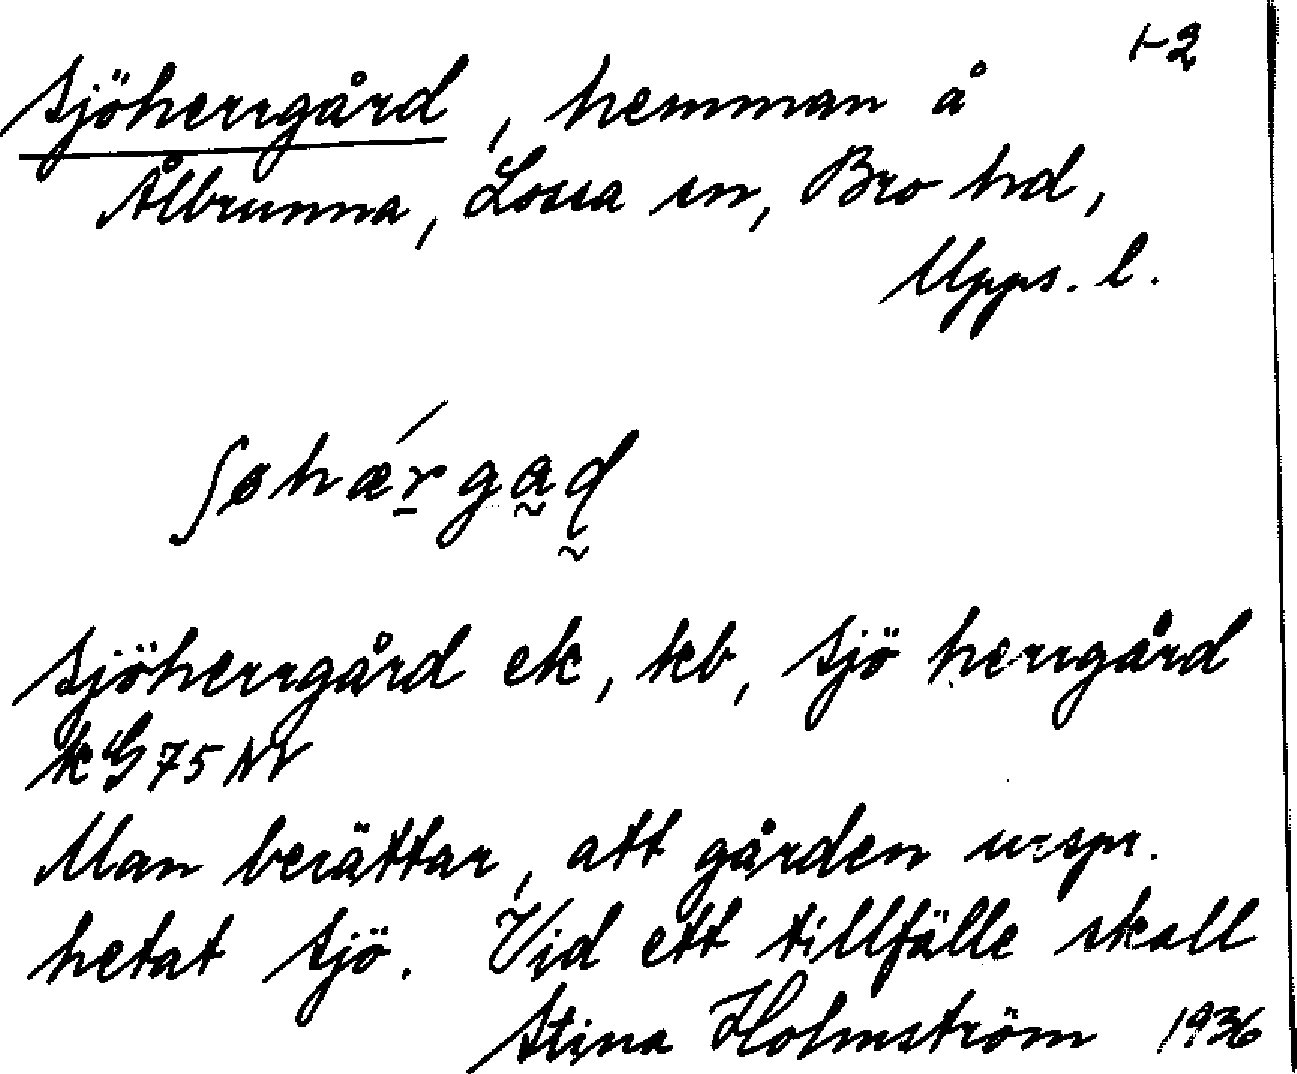 1-2
Sjöherrgård, hemman å
Ålbrunna, Lossa sn, Bro hd,
Upps. l.
ʃøhæŕ̲ga̰d̰
Sjöherrgård ek, kb, Sjö herrgård
kG 75 NV
Man berättar, att gården urspr.
hetat Sjö. Vid ett tillfälle skall
Stina Holmström 1936